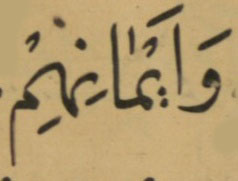 وَاَيْمَانِهِمْ